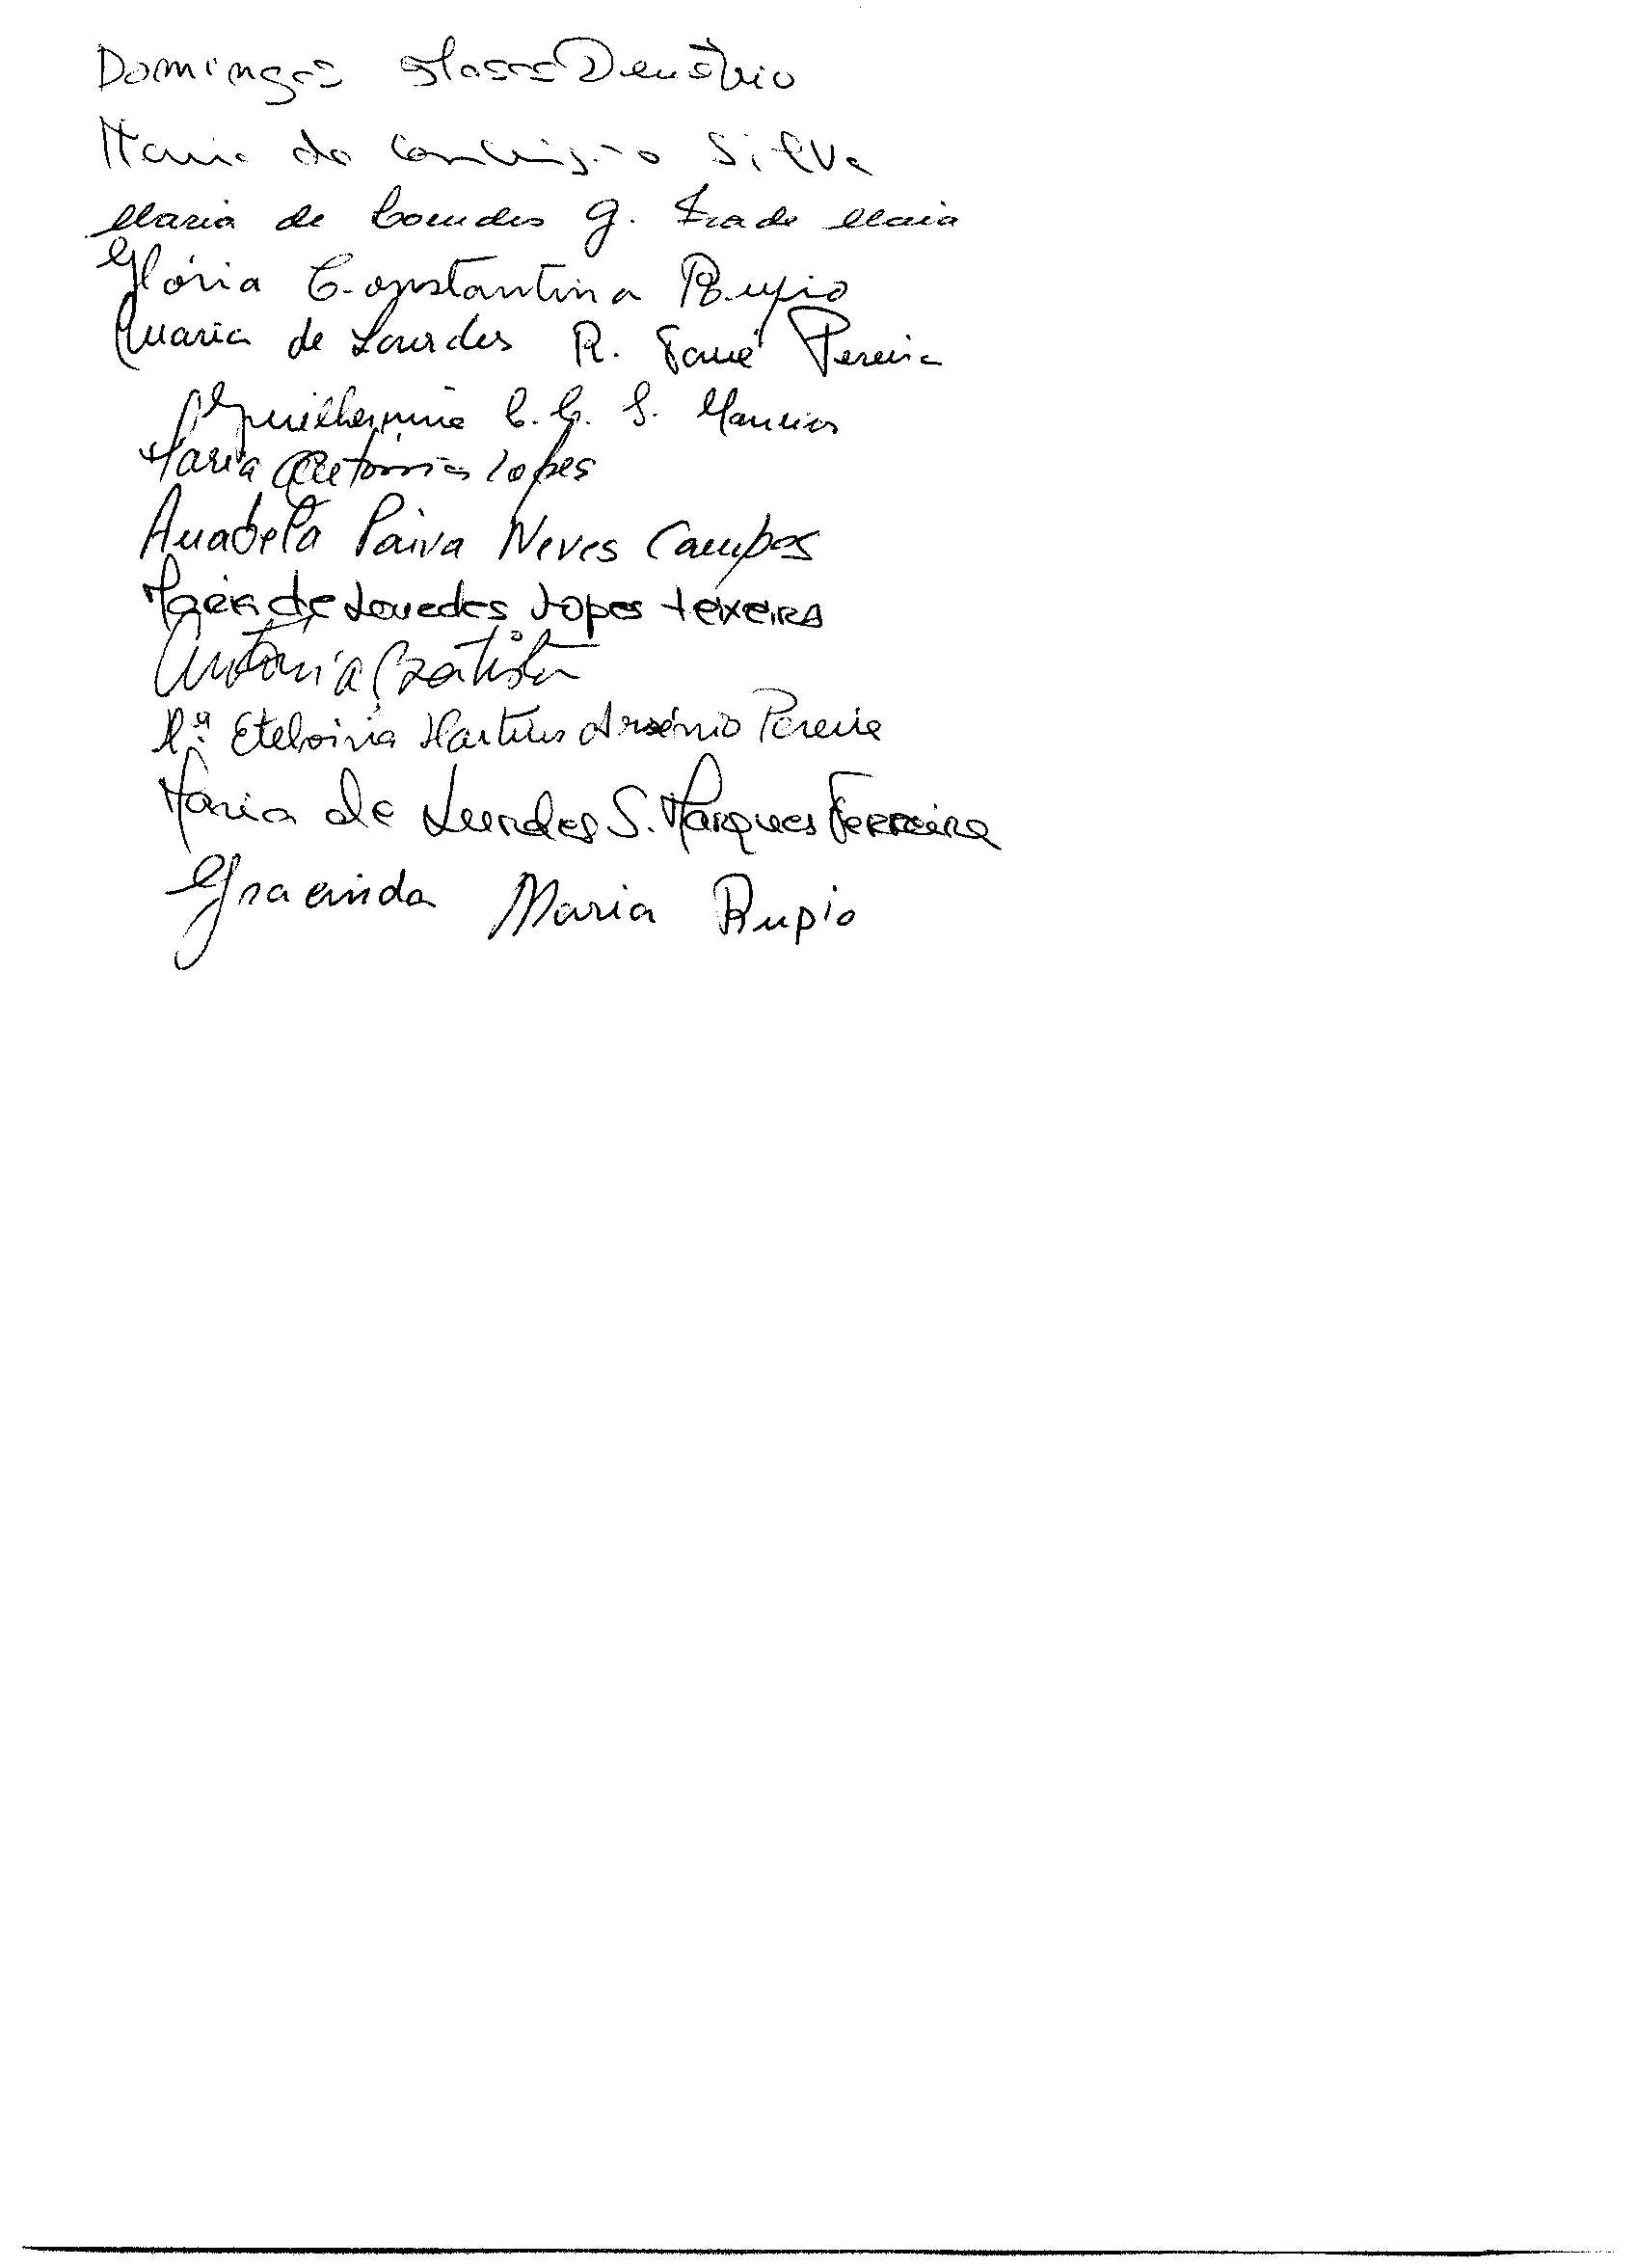 Domingos Demétrio
Maria da Conceição Silva
Maria de Lourdes G. Frade Maia
Glória Constantina Rupio
Maria de Lourdes R. Tomé Pereira
Guilhermina C. C. S.
Maria Antónia Lopes
Anabela Paiva Neves Campos
Maria de Lourdes Lopes Teixeira
Antónia Batista
Mª Etelvina Martins Arsénio Pereira
Maria de Lurdes S. Marques Ferreira
Gracinda Maria Rupio